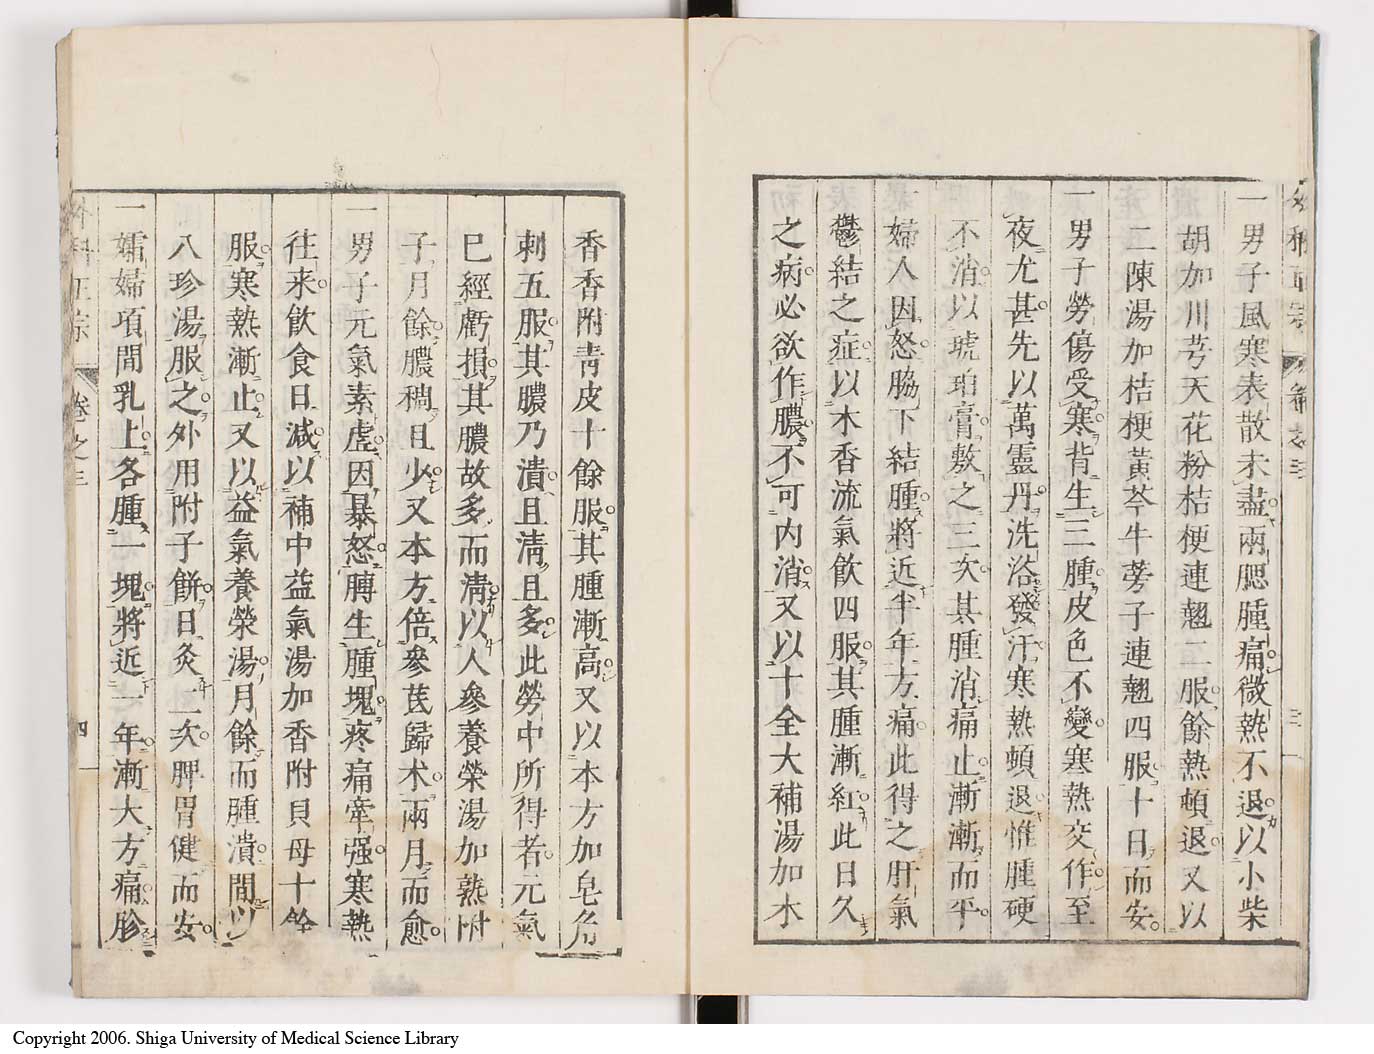 一男子風寒表散未盡兩腮腫痛微熱不退以小柴
胡加川芎天花粉桔梗連翹二服餘熱頓退又以
二陳湯加桔梗黃芩牛蒡子連翹四服十日而安
一男子勞傷受寒背生三腫皮色不變寒熱交作至
夜尤甚先以萬靈丹洗浴發汗寒熱頓退惟腫硬
不消以琥珀膏敷之三次其腫消痛止漸漸而平
一婦人因怒脇下結腫將近半年方痛此得之肝氣
鬱結之症以木香流氣飲四服其腫漸紅此日久
之病必欲作膿不可內消又以十全大補湯加木
香香附青皮十餘服其腫漸高又以本方加皂角
刺五服其膿乃潰且清且多此勞中所得者元氣
已經虧損其膿故多而清以人參養榮湯加熟附
子月餘膿稠且少又本方倍參芪歸术兩月而愈
一男子元氣素虛因暴怒膊生腫塊疼痛牽强寒熱
往来飲食日減以補中益氣湯加香附貝母十餘
服寒熱漸止又以益氣養榮湯月餘而腫潰間以
八珍湯服之外用附子餅日灸一次脾胃健而安
一孀婦項間乳上各腫一塊將近一年漸大方痛胗
外科正宗
卷之三
四
Copyright 2006. Shiga University of Medical Science Library